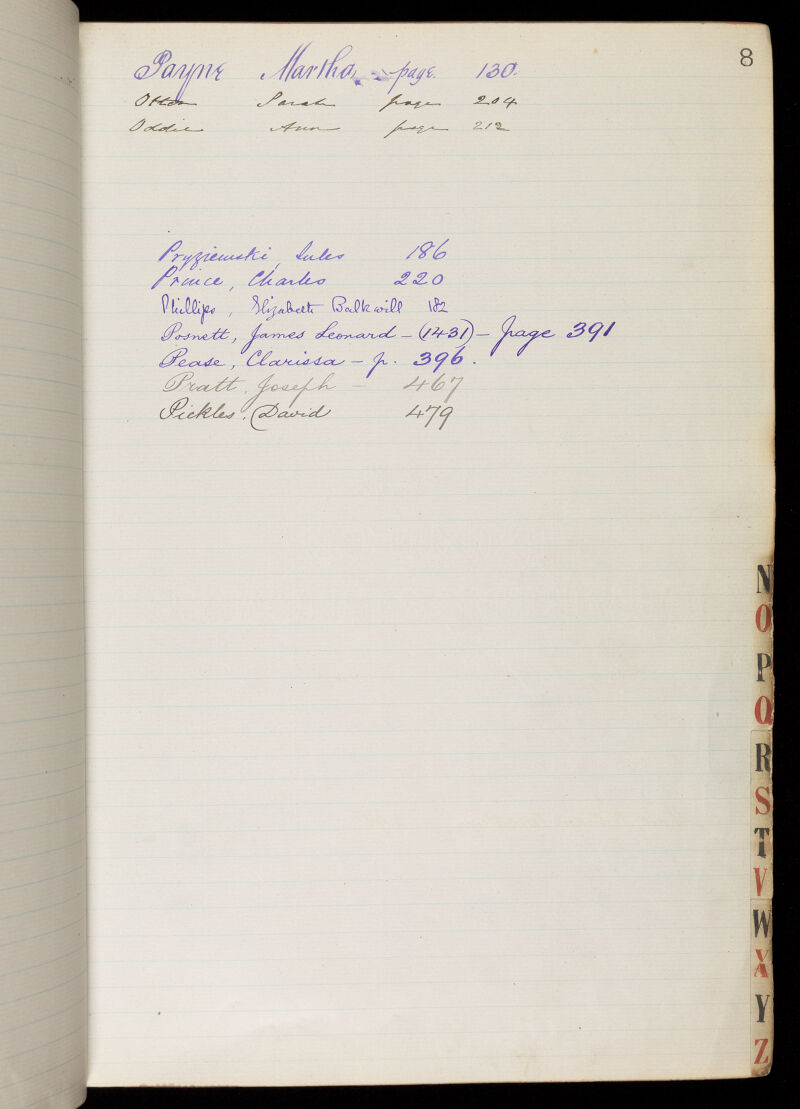 8
Payne Martha page. 130.
Otter Sarah page 204
Oddie Ann page 212
Pryziemski, Jules 186
Prince, Charles 220
Phillips, Elizabeth Balkwill 182
Posnett, James Leonard - (1431) - page 391
Pease, Clarissa - p. 396.
Pratt, Joseph - 467
Pickles, David 479
N
O
P
Q
R
S
T
V
W
X
Y
Z